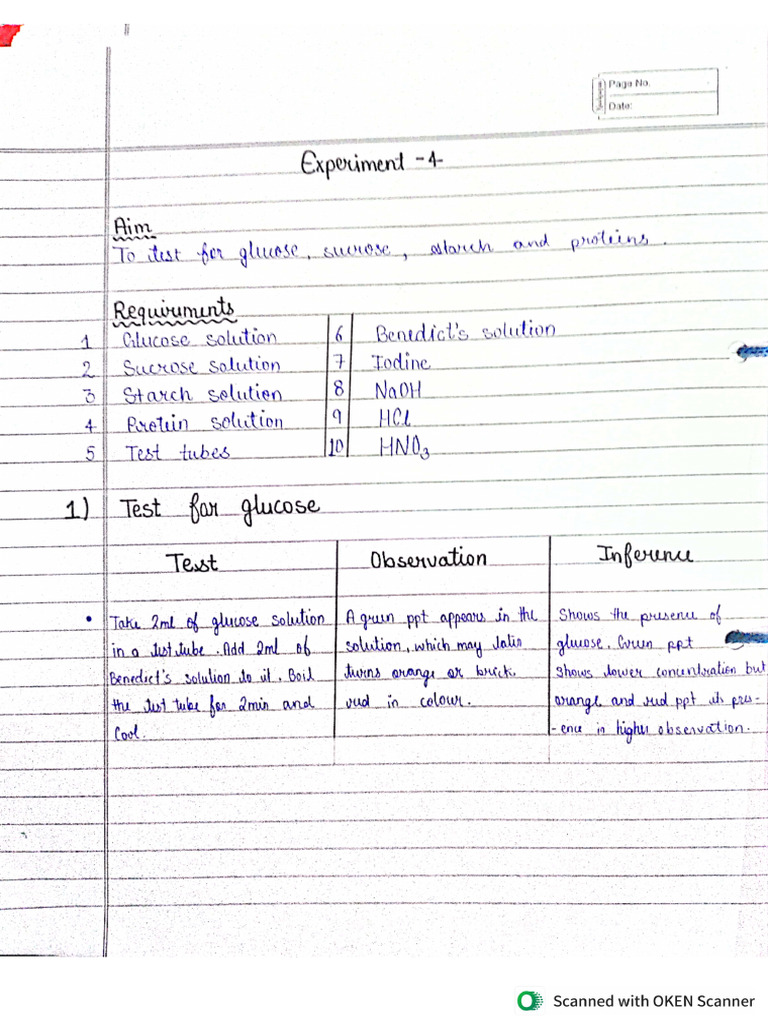 Page No.
Date:
Experiment - 4
Aim
To test for glucose, sucrose, starch and proteins.
Requirements
1 Glucose solution 6 Benedict's solution
2 Sucrose solution 7 Iodine
3 Starch solution 8 NaOH
4 Protein solution 9 HCl
5 Test tubes 10 HNO3
1) Test for glucose
Test Observation Inference
• Take 2ml of glucose solution
in a test tube. Add 2ml of
Benedict's solution to it. Boil
the test tube for 2min and
Cool.
A green ppt appears in the
solution, which may later
turns orange or brick
red in colour.
Shows the presence of
glucose. Green ppt
shows lower concentration but
orange and red ppt is pres-
-ence in higher observation.
Scanned with OKEN Scanner